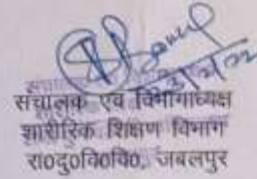 संचालक एवं विभागाध्यक्ष
शारीरिक शिक्षण विभाग
रा०दु०वि०वि०, जबलपुर